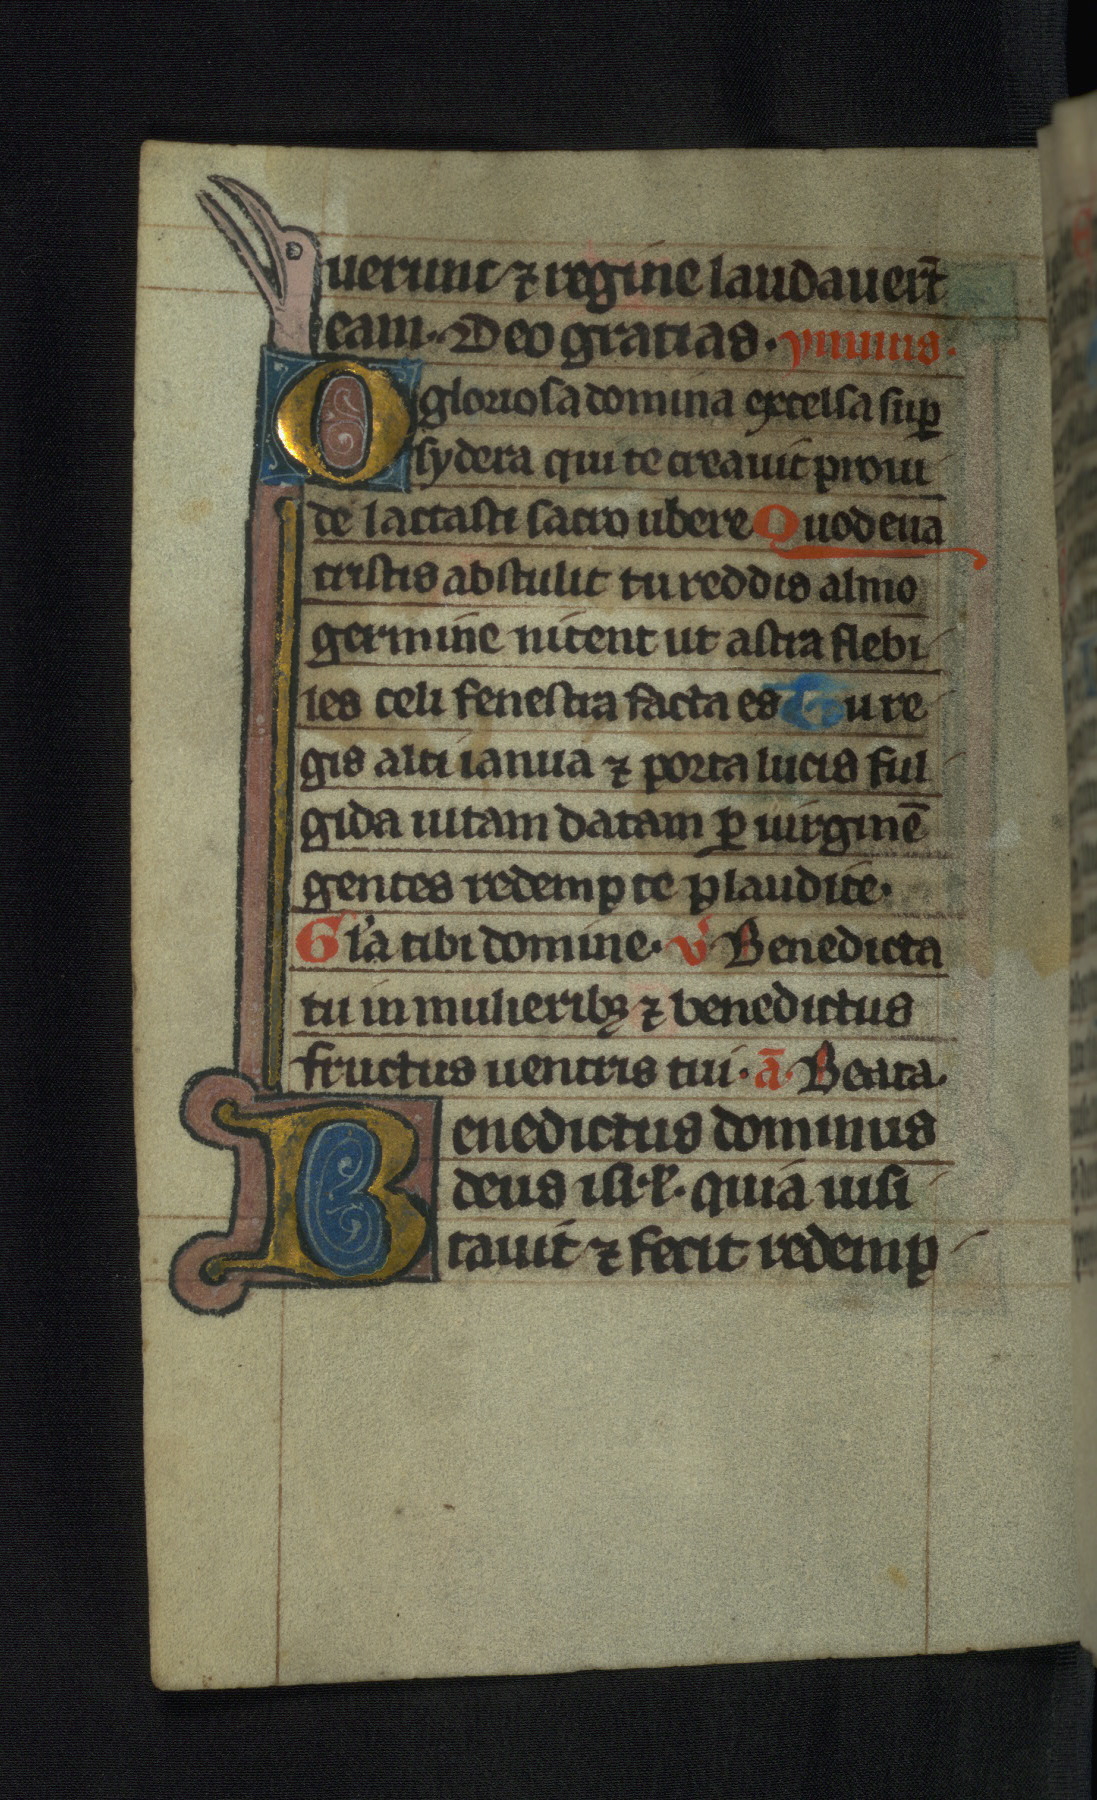 uerunt ⁊ regine laudauer̄t
eam. Deo gratias. ymnus.
O gloriosa domina excelsa sup̱
sydera qui te creauit proui
de lactasti sacro ubere Quod eua
tristis abstulit tu reddis almo
germine intrent ut astra flebi
les celi fenestra facta es Tu re
gis alti ianua ⁊ porta lucis ful
gida uitam datam ꝑ uirginē
gentes redempte plaudite.
Gl'a tibi domine. v̓ Benedicta
tu in mulieribꝰ ⁊ benedictus
fructus uentris tui. ā. Beata.
Benedictus dominus
deus isr̄l. quia uisi
tauit ⁊ fecit redemp